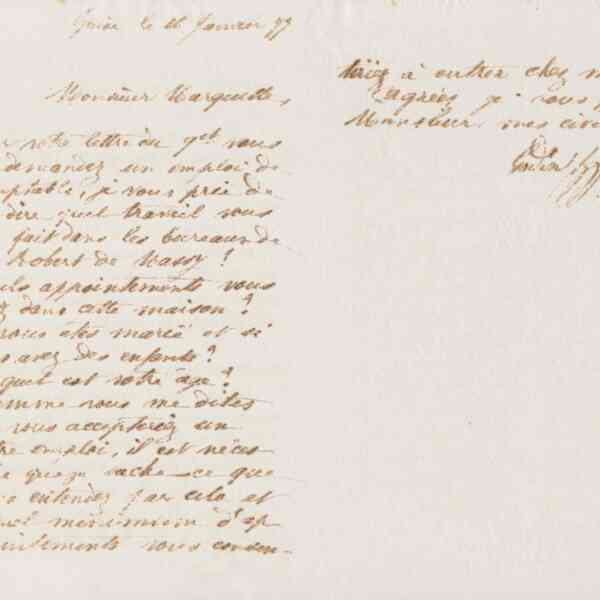 Guise le 16 Janvier 77
Monsieur Marquette,
votre lettre du 9ct vous
demandez un emploi de
ptable, je vous prie de
dire quel travail vous
fait dans les bureaux de
Robert de Massy ?
ls appointements vous
z dans cette maison ?
vous êtes marié et si
avez des enfants ?
quel est votre âge ?
omme vous me dites
vous accepteriez un
tre emploi, il est néces
que je sache ce que
entendez par cela et
uel minimum d'ap
ointements vous consen-
tiriez à entrer chez m
Agréez je vous
Monsieur, mes civi
Godin